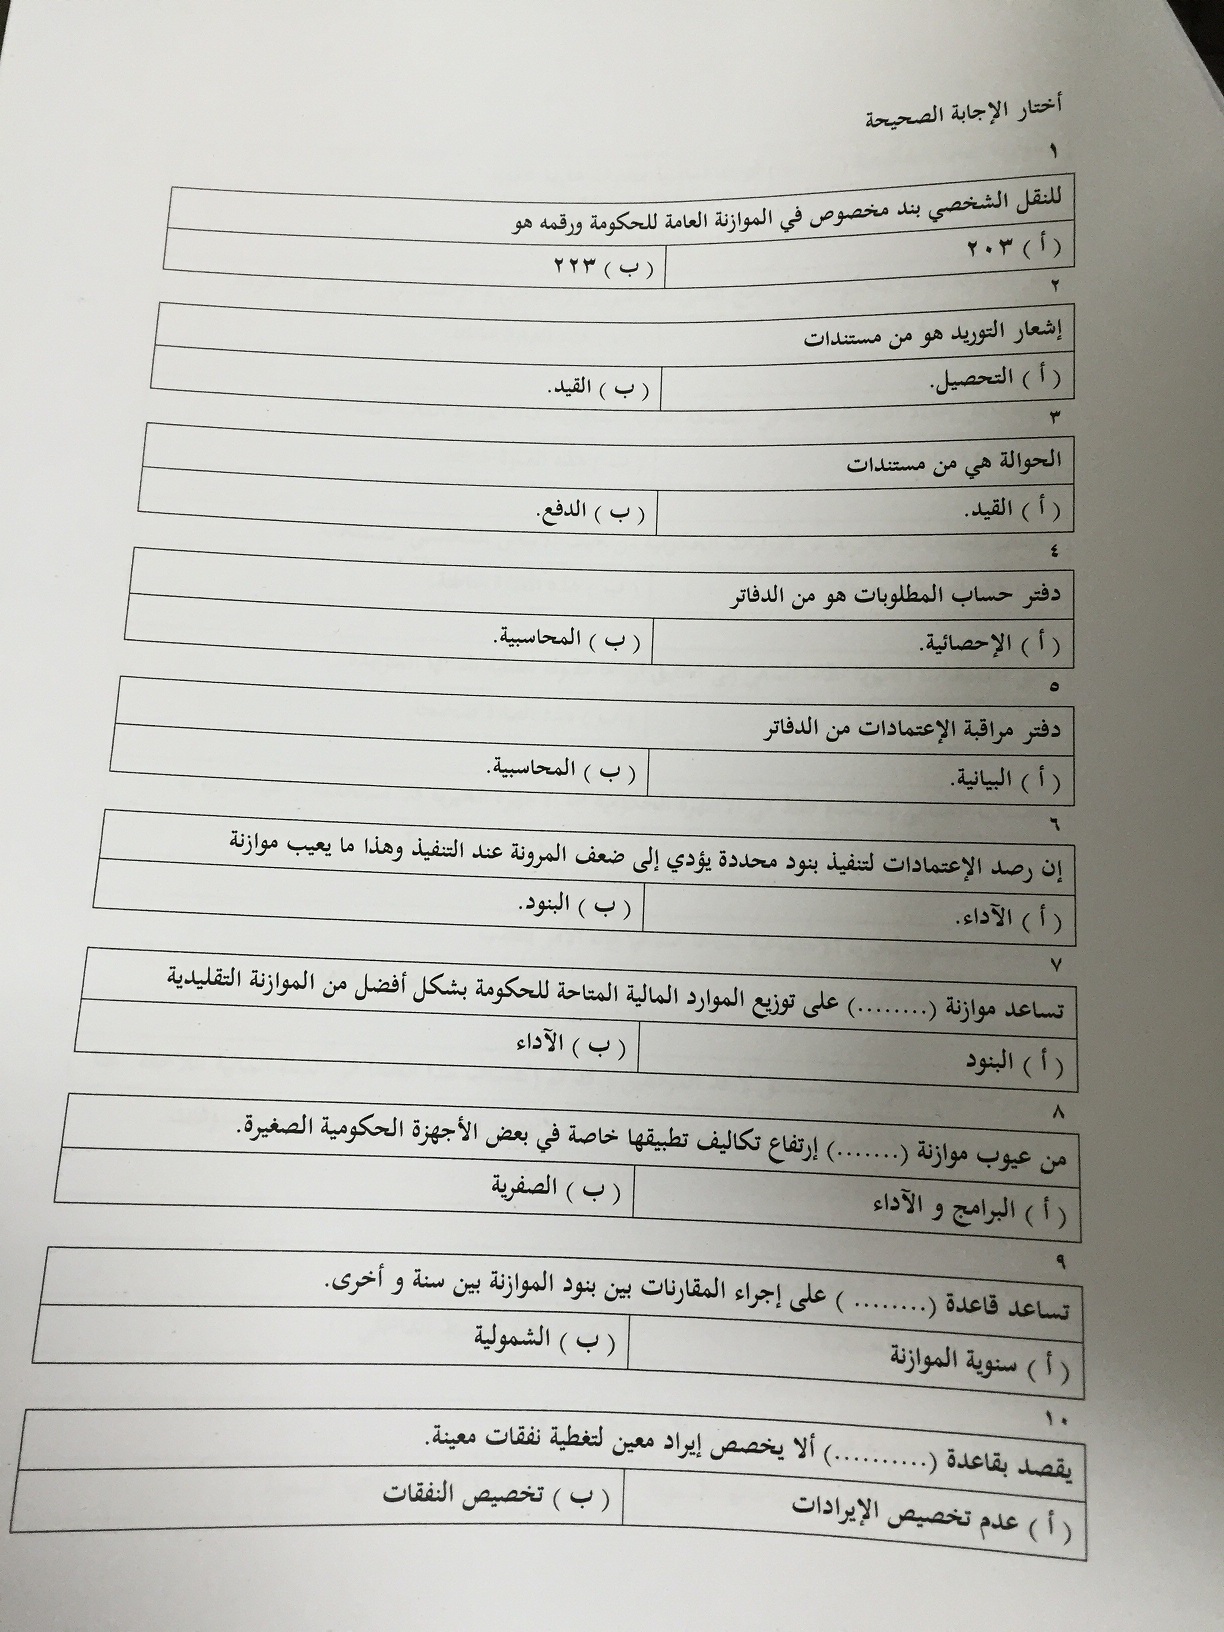 أختار الإجابة الصحيحة
١
للنقل الشخصي بند مخصوص في الموازنة العامة للحكومة ورقمه هو
( أ ) ٢٠٣ ( ب ) ٢٢٣
٢
إشعار التوريد هو من مستندات
( أ ) التحصيل. ( ب ) القيد.
٣
الحوالة هي من مستندات
( أ ) القيد. ( ب ) الدفع.
٤
دفتر حساب المطلوبات هو من الدفاتر
( أ ) الإحصائية. ( ب ) المحاسبية.
٥
دفتر مراقبة الإعتمادات من الدفاتر
( أ ) البيانية. ( ب ) المحاسبية.
٦
إن رصد الإعتمادات لتنفيذ بنود محددة يؤدي إلى ضعف المرونة عند التنفيذ وهذا ما يعيب موازنة
( أ ) الآداء. ( ب ) البنود.
٧
تساعد موازنة (........) على توزيع الموارد المالية المتاحة للحكومة بشكل أفضل من الموازنة التقليدية
( أ ) البنود ( ب ) الآداء
٨
من عيوب موازنة (.......) إرتفاع تكاليف تطبيقها خاصة في بعض الأجهزة الحكومية الصغيرة.
( أ ) البرامج و الآداء ( ب ) الصفرية
٩
تساعد قاعدة (........ ) على إجراء المقارنات بين بنود الموازنة بين سنة و أخرى.
( أ ) سنوية الموازنة ( ب ) الشمولية
١٠
يقصد بقاعدة (..........) ألا يخصص إيراد معين لتغطية نفقات معينة.
( أ ) عدم تخصيص الإيرادات ( ب ) تخصيص النفقات